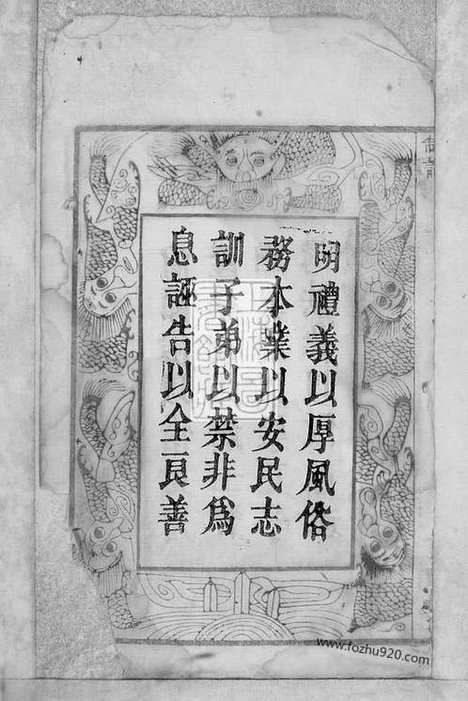 明禮義以厚風俗
務本業以安民志
訓子弟以禁非爲
息誣告以全良善
www.fozhu920.com